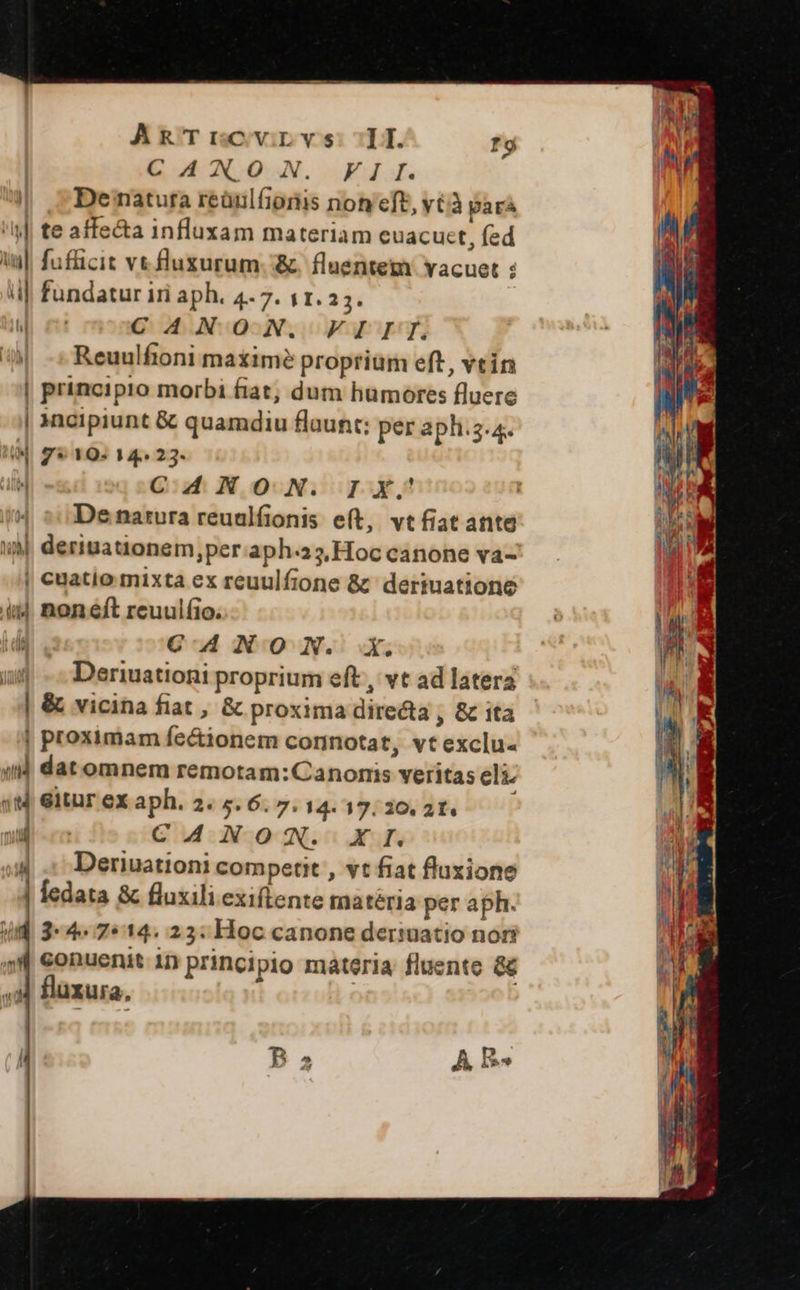 ARTICVLVS II. 19
CANON. VII.
De natura reuulſionis non eſt, vt à parte
te affecta influxam materiam euacuet, ſed
ſufficit vt fluxurum & fluentem vacuet :
fundatur in aph. 4. 7. 11. 23.
CANON. VIII.
Reuulſioni maximè proprium eſt, vt in
principio morbi fiat, dum humores fluere
incipiunt & quamdiu fluunt: per aph. 3. 4.
7. 10. 14. 23.
CANON. IX.
De natura reuulſionis eſt, vt fiat ante
deriuationem, per aph. 23. Hoc canone va-
cuatio mixta ex reuulſione & deriuatione
non eſt reuulſio.
CANON. X.
Deriuationi proprium eſt, vt ad latera
& vicina fiat, & proxima directa, & ita
proximam ſectionem connotat, vt exclu-
dat omnem remotam: Canonis veritas eli-
citur ex aph. 2. 5. 6. 7. 14. 17. 20. 21.
CANON. XI.
Deriuationi competit, vt fiat fluxione
ſedata & fluxili exiſtente materia per aph.
3. 4. 7. 14. 23. Hoc canone deriuatio non
conuenit in principio materia fluente &
fluxura.
B 2 AR-